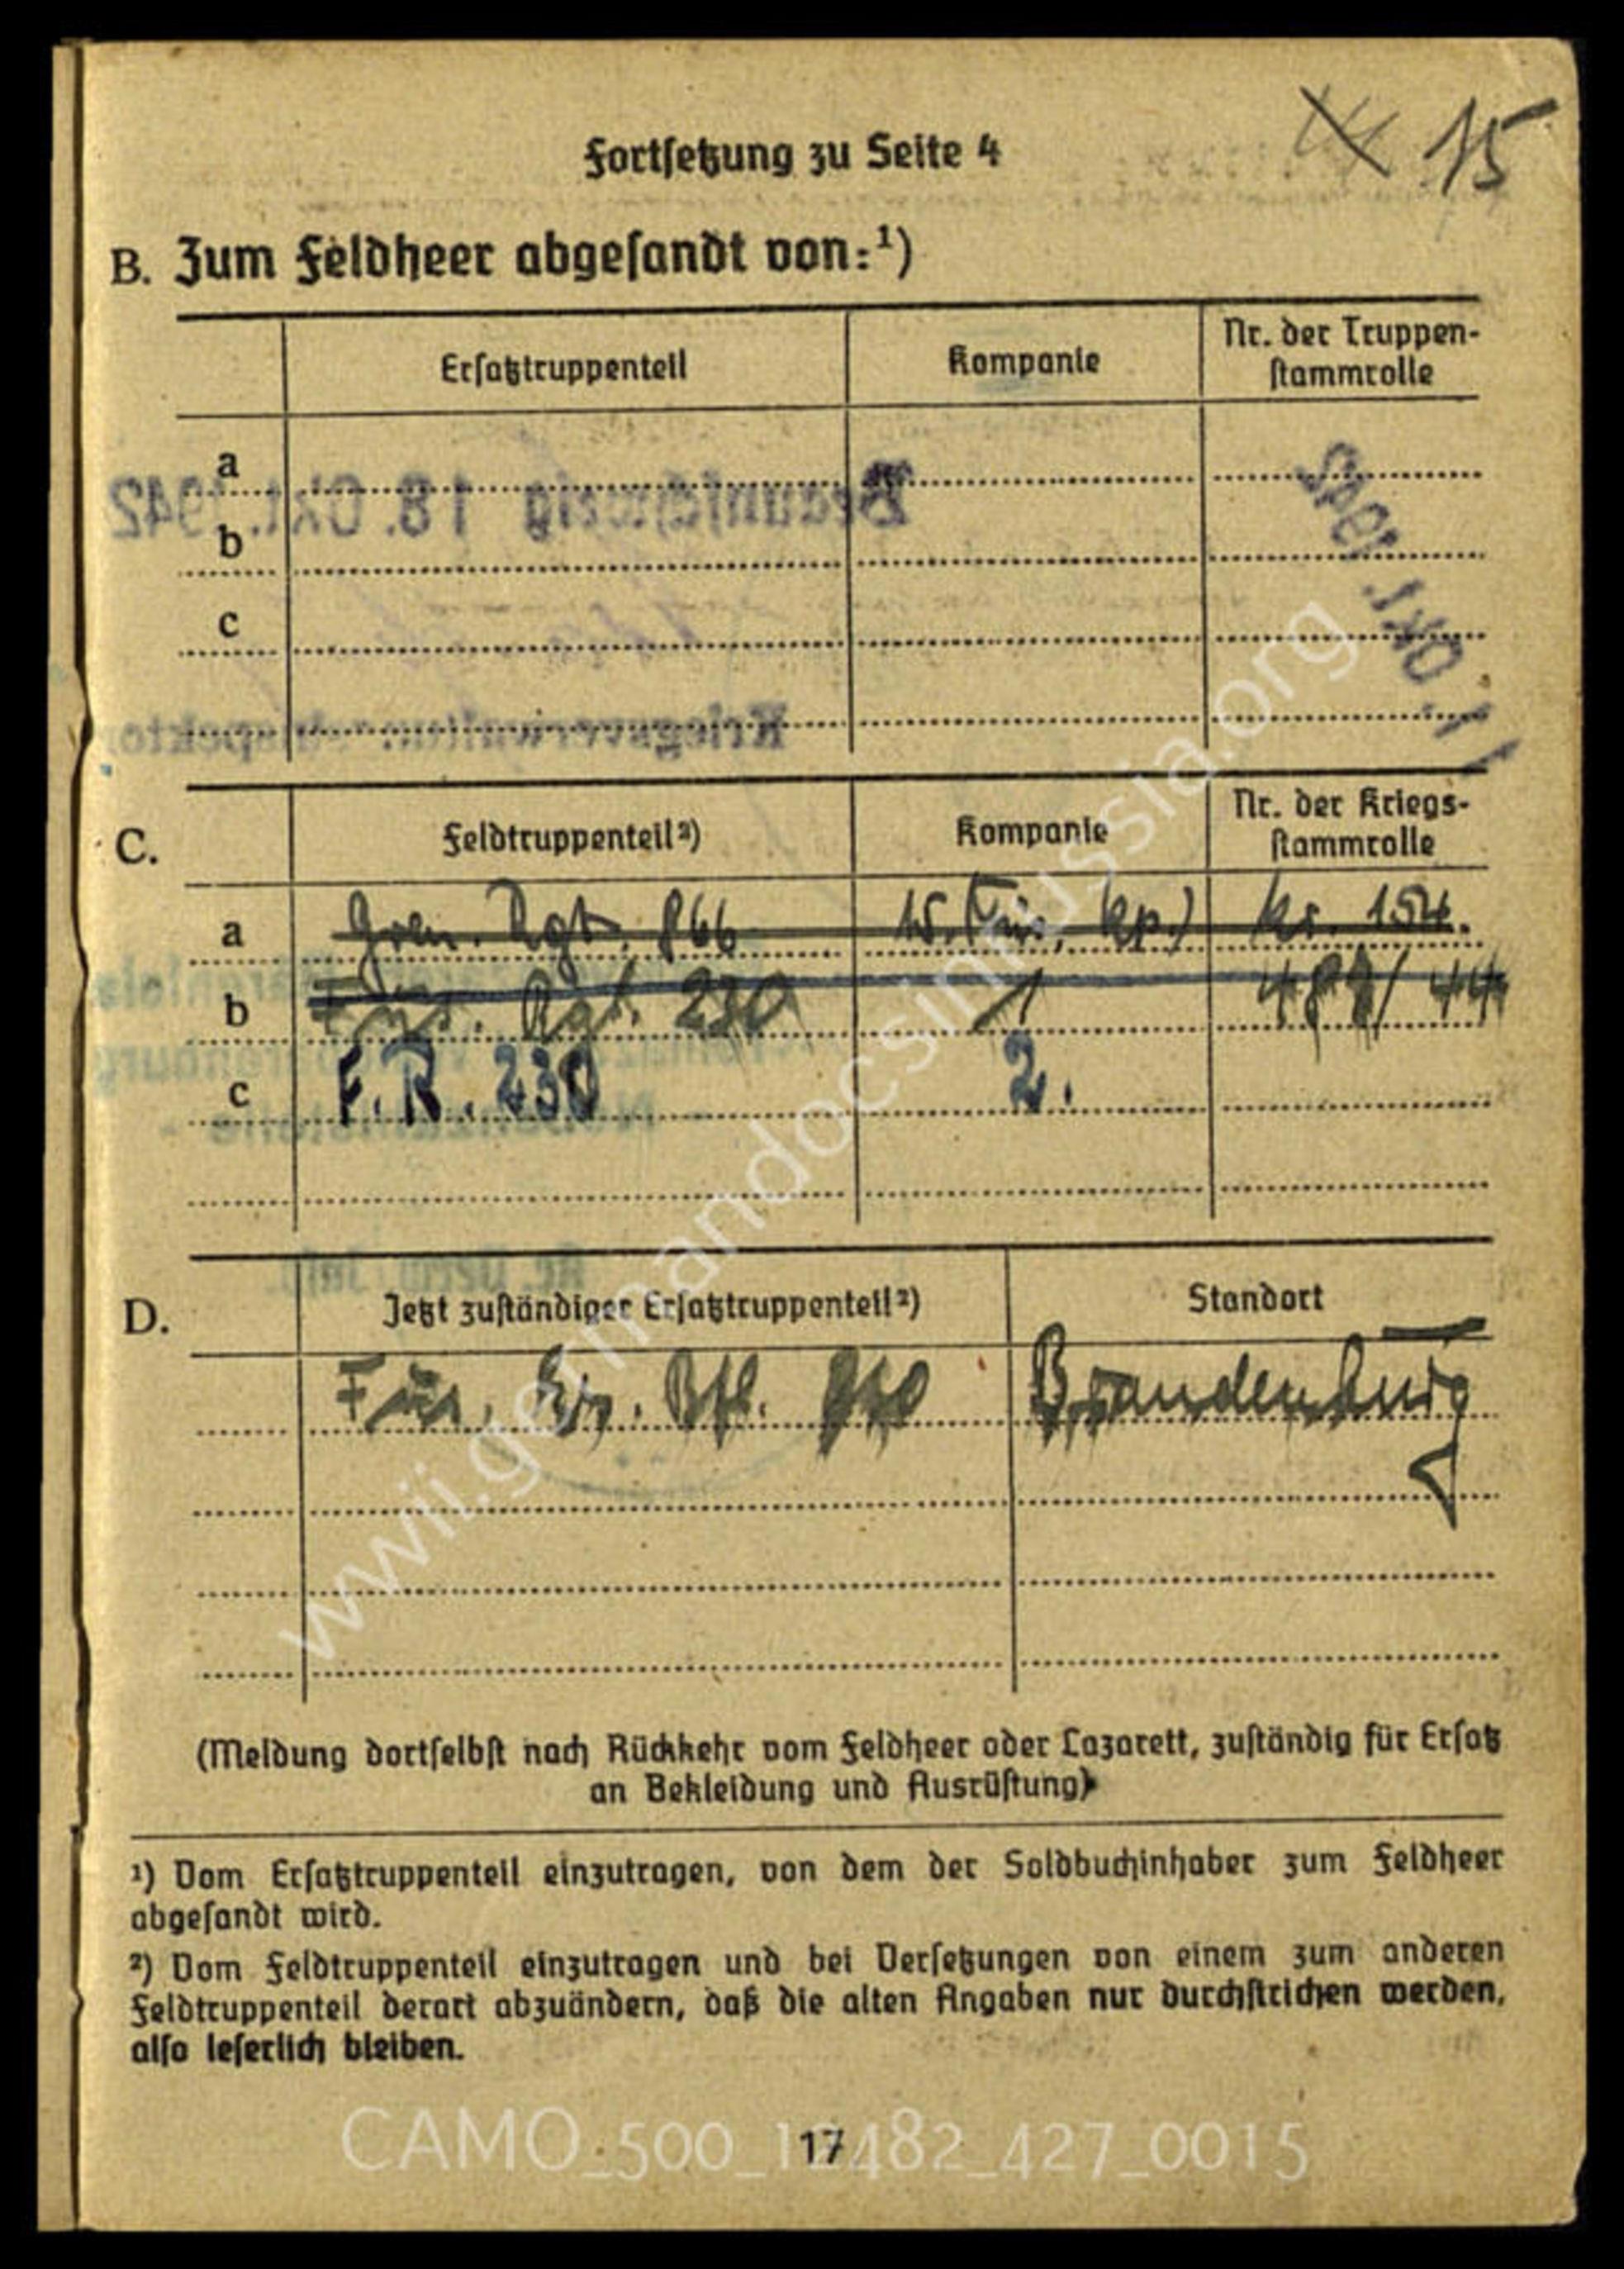 15
Fortsetzung zu Seite 4
B. Zum Feldheer abgesandt von:¹)
Ersatztruppenteil Kompanie Nr. der Truppen-
stammrolle
a
Braunschweig 18. Okt. 1942
b
c
C. Feldtruppenteil²) Kompanie Nr. der Kriegs-
stammrolle
a Gren. Rgt. 866 15. (Füs. Kp.) Kr. 154.
b Füs. Rgt. 230 1 /44
c F. R. 230 2.
D. Jetzt zuständiger Ersatztruppenteil²) Standort
Füs. Ers. Btl. Brandenburg
(Meldung dortselbst nach Rückkehr vom Feldheer oder Lazarett, zuständig für Ersatz
an Bekleidung und Ausrüstung)
¹) Vom Ersatztruppenteil einzutragen, von dem der Soldbuchinhaber zum Feldheer
abgesandt wird.
²) Vom Feldtruppenteil einzutragen und bei Versetzungen von einem zum anderen
Feldtruppenteil derart abzuändern, daß die alten Angaben nur durchstrichen werden,
also leserlich bleiben.
17
wwii.germandocsinrussia.org
CAMO_500_12482_427_0015